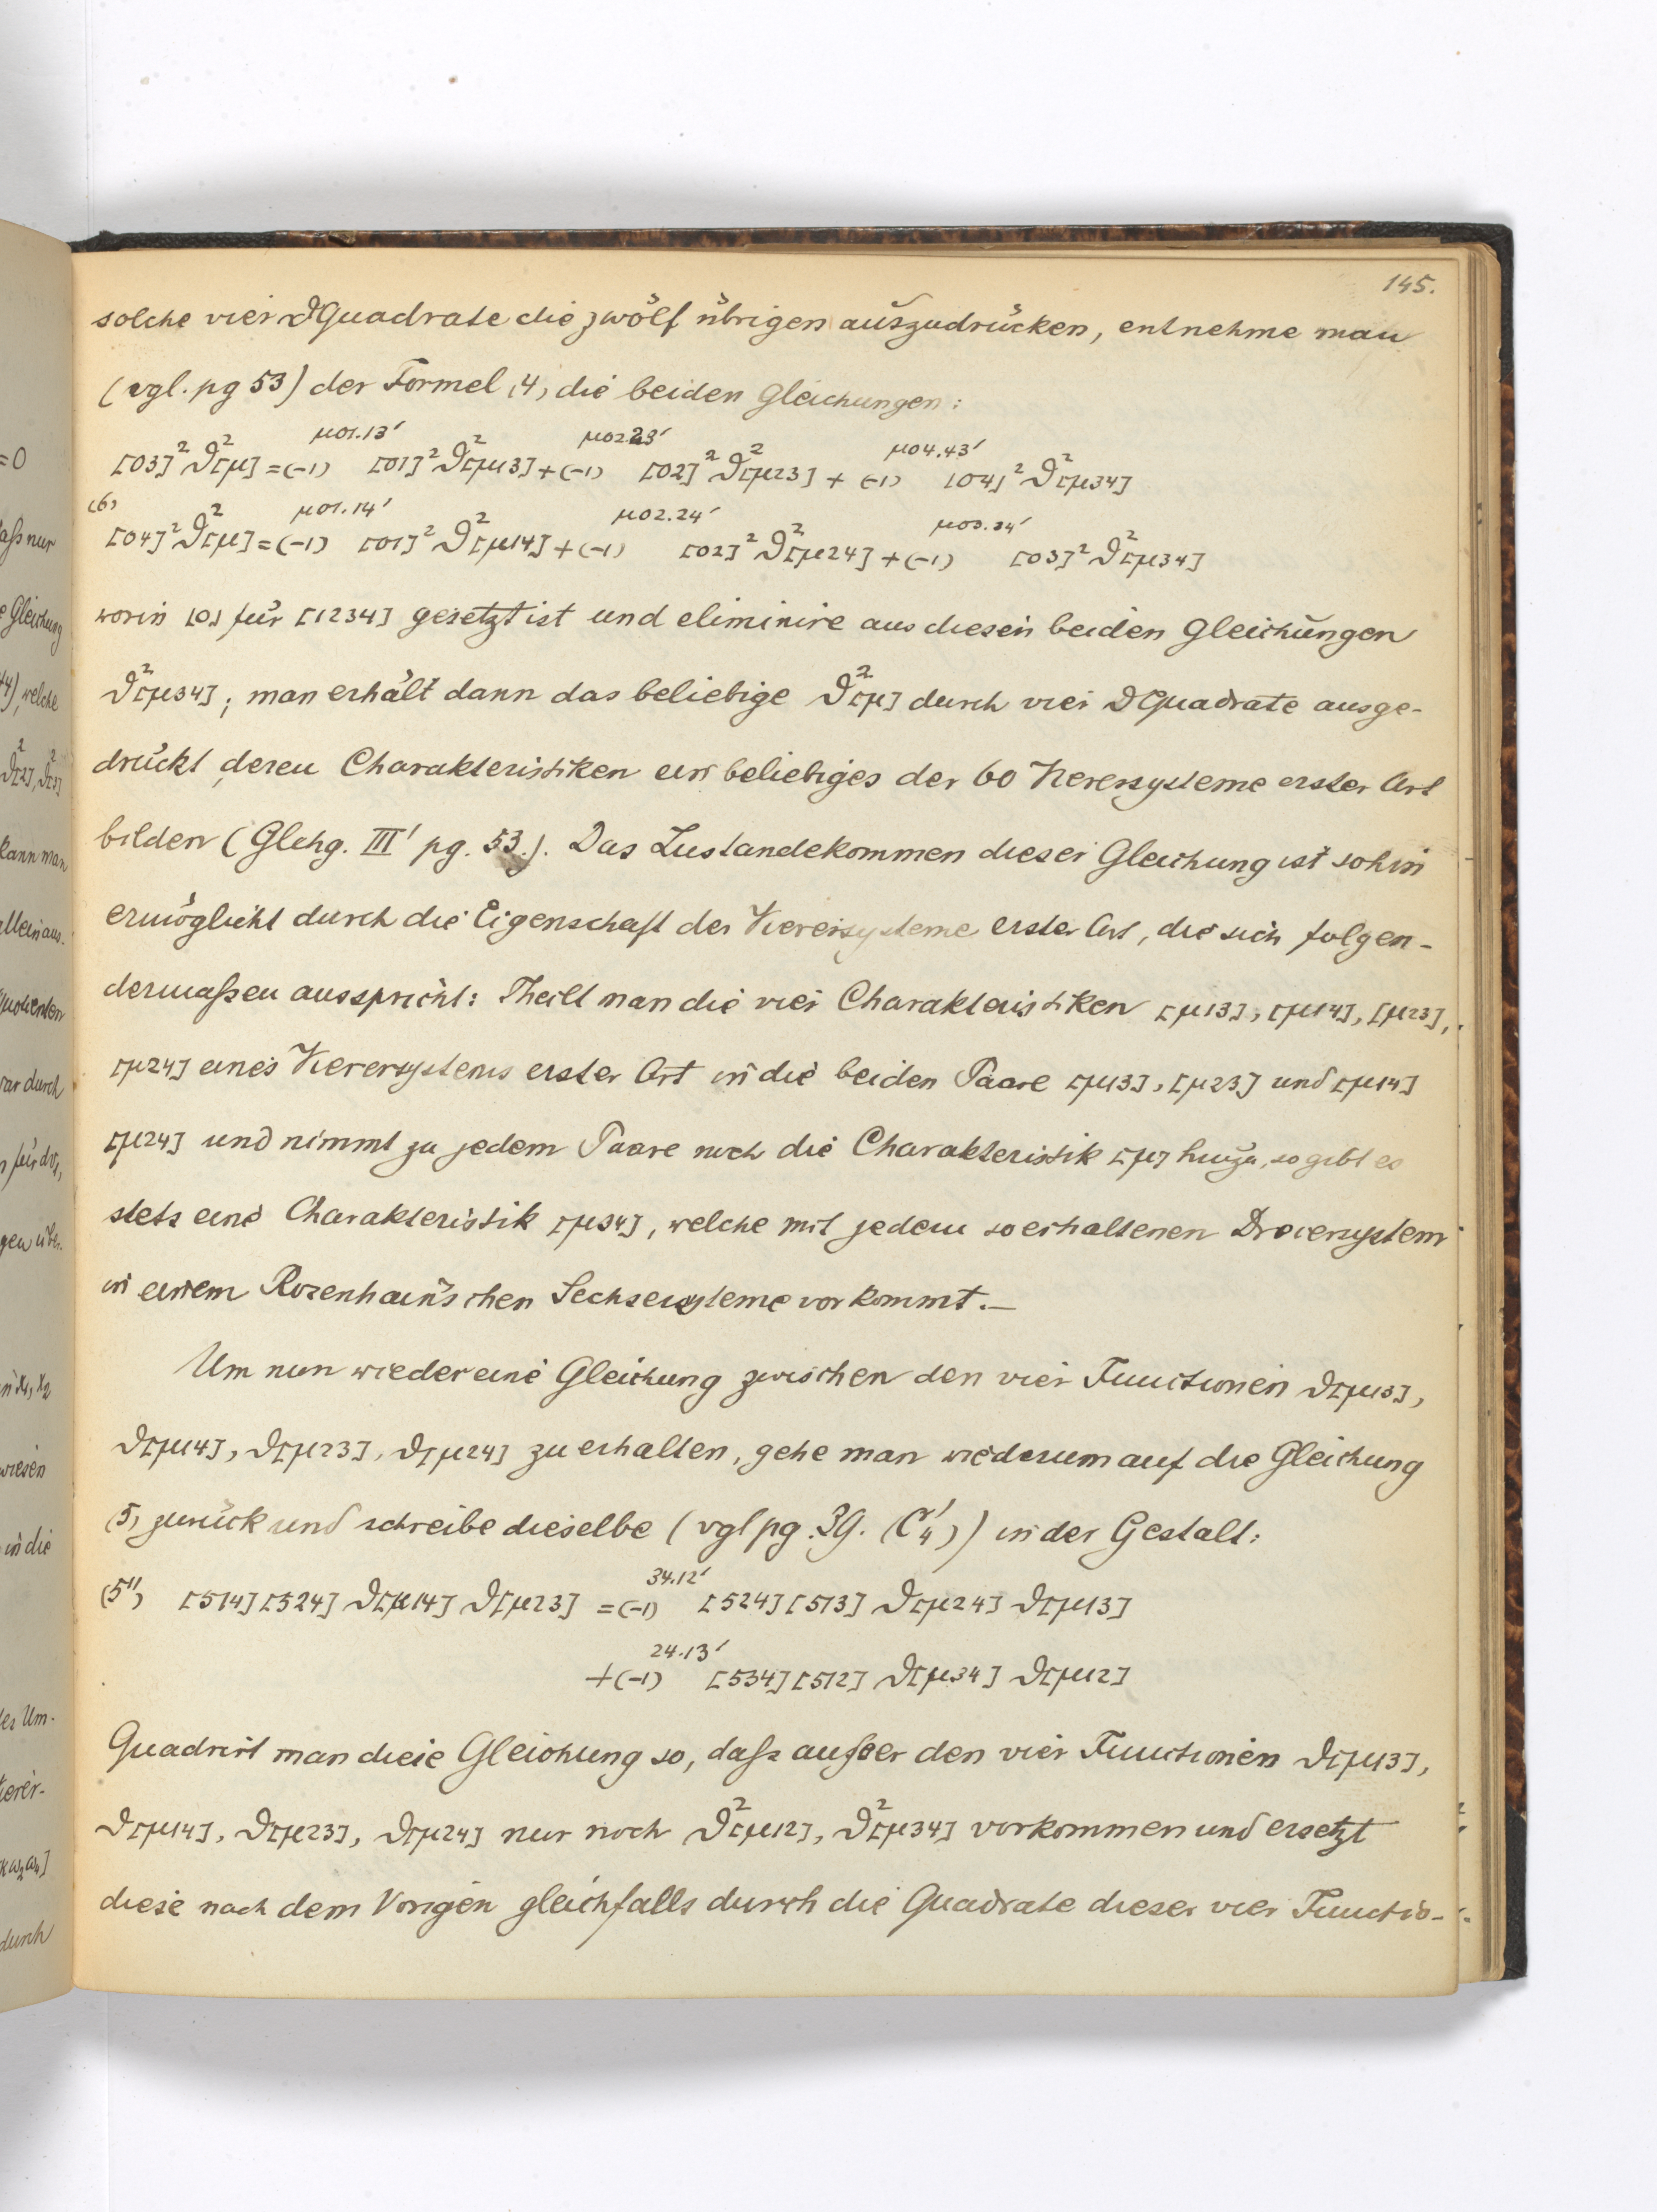 145.
solche vier ϑQuadrate die zwölf übrigen auszudrücken, entnehme man
(vgl. pg 53) der Formel (4) die beiden Gleichungen:
[03]² ϑ²[μ] = (-1)^{μ01.13'} [01]² ϑ²[μ13] + (-1)^{μ02.23'} [02]² ϑ²[μ23] + (-1)^{μ04.43'} [04]² ϑ²[μ34]
(6)
[04]² ϑ²[μ] = (-1)^{μ01.14'} [01]² ϑ²[μ14] + (-1)^{μ02.24'} [02]² ϑ²[μ24] + (-1)^{μ03.34'} [03]² ϑ²[μ34]
worin [0] für [1234] gesetzt ist und eliminire aus diesen beiden Gleichungen
ϑ²[μ34]; man erhält dann das beliebige ϑ²[μ] durch vier ϑQuadrate ausge-
drückt, deren Charakteristiken ein beliebiges der 60 Vierersysteme erster Art
bilden (Glchg. III' pg. 53.). Das Zustandekommen dieser Gleichung ist sohin
ermöglicht durch die Eigenschaft der Vierersysteme erster Art, die sich folgen-
dermaßen ausspricht: Theilt man die vier Charakteristiken [μ13], [μ14], [μ23],
[μ24] eines Vierersystems erster Art in die beiden Paare [μ13], [μ23] und [μ14]
[μ24] und nimmt zu jedem Paare noch die Charakteristik [μ] hinzu, so gibt es
stets eine Charakteristik [μ34], welche mit jedem so erhaltenen Dreiersystem
in einem Rosenhain'schen Sechsersysteme vorkommt.—
Um nun wieder eine Gleichung zwischen den vier Functionen ϑ[μ13],
ϑ[μ14], ϑ[μ23], ϑ[μ24] zu erhalten, gehe man wiederum auf die Gleichung
(5) zurück und schreibe dieselbe (vgl pg. 39. (C₄')) in der Gestalt:
(5'') [514][524] ϑ[μ14] ϑ[μ23] = (-1)^{34.12'} [524][513] ϑ[μ24] ϑ[μ13]
+ (-1)^{24.13'} [534][512] ϑ[μ34] ϑ[μ12]
Quadrirt man diese Gleichung so, daß außer den vier Functionen ϑ[μ13],
ϑ[μ14], ϑ[μ23], ϑ[μ24] nur noch ϑ²[μ12], ϑ²[μ34] vorkommen und ersetzt
diese nach dem Vorigen gleichfalls durch die Quadrate dieser vier Functio-